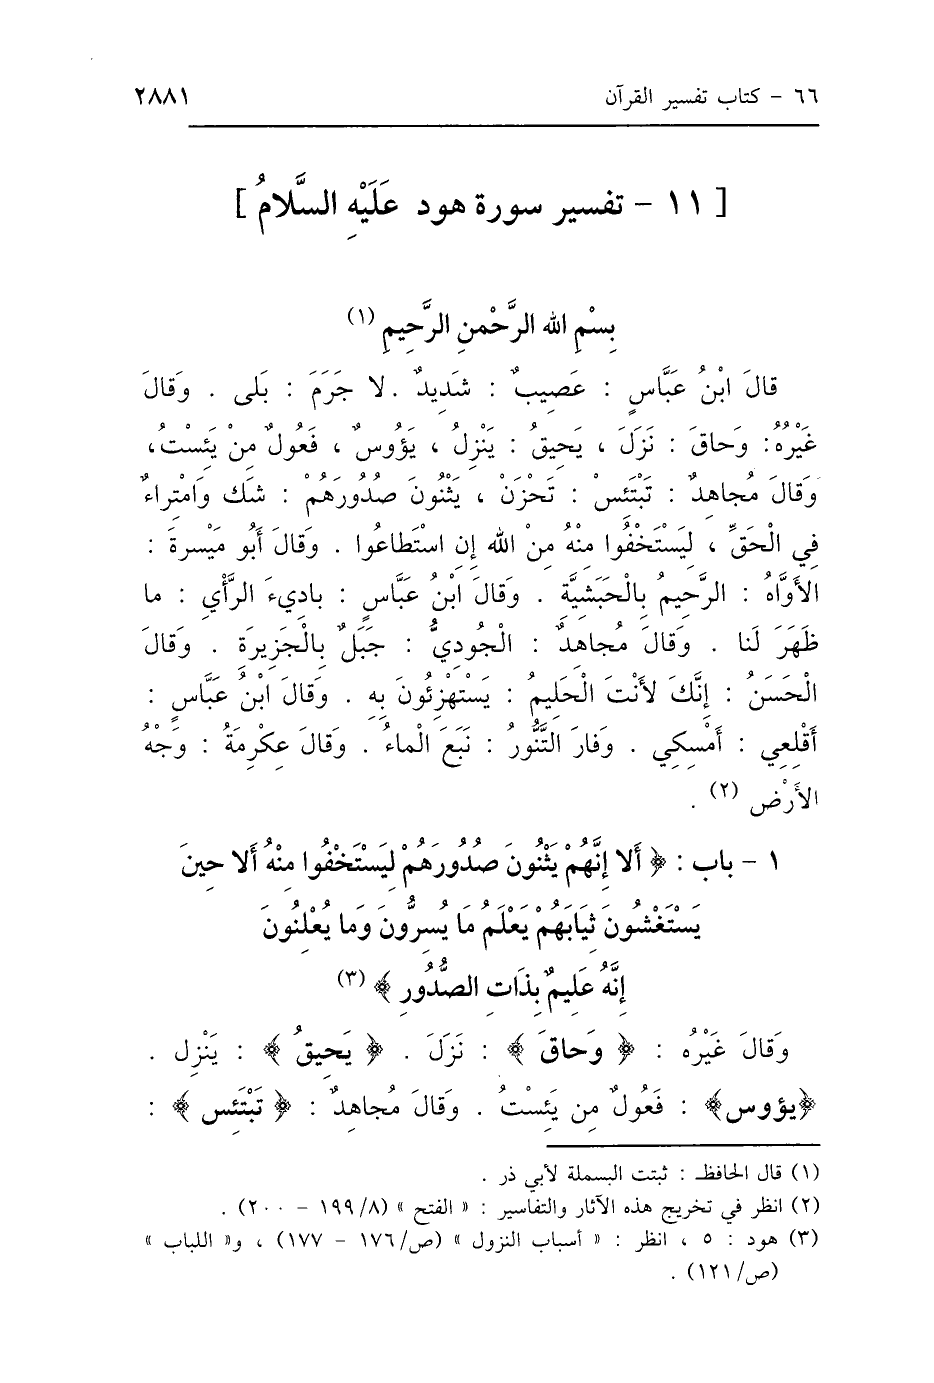 ٦٦ - كتاب تفسير القرآن ٢٨٨١
[ ١١ - تفسير سورة هود عَلَيْهِ السَّلامُ ]
بِسْمِ الله الرَّحْمنِ الرَّحِيمِ (١)
قالَ ابْنُ عَبَّاسٍ : عَصِيبٌ : شَدِيدٌ . لا جَرَمَ : بَلى . وَقالَ
غَيْرُهُ : وَحاقَ : نَزَلَ ، يَحِيقُ : يَنْزِلُ ، يَؤُوسٌ ، فَعُولٌ مِنْ يَئِسْتُ ،
وَقالَ مُجاهِدٌ : تَبْتَئِسْ : تَحْزَنْ ، يَثْنُونَ صُدُورَهُمْ : شَك وَامْتِراءٌ
فِي الْحَقِّ ، لِيَسْتَخْفُوا مِنْهُ مِنْ الله إِن اسْتَطاعُوا . وَقالَ أَبُو مَيْسرةَ :
الأَوَّاهُ : الرَّحِيمُ بِالْحَبَشِيَّةِ . وَقالَ ابْنُ عَبَّاسٍ : بادِيءَ الرَّأْيِ : ما
ظَهَرَ لَنا . وَقالَ مُجاهِدٌ : الْجُودِيُّ : جَبَلٌ بِالْجَزِيرَةِ . وَقالَ
الْحَسَنُ : إِنَّكَ لأَنْتَ الْحَلِيمُ : يَسْتَهْزِئُونَ بِهِ . وَقالَ ابْنُ عَبَّاسٍ :
أَقْلِعِي : أَمْسِكِي . وَفارَ التَّنُّورُ : نَبَعَ الْماءُ . وَقالَ عِكْرِمَةُ : وَجْهُ
الأَرْضِ (٢) .
١ - باب : ﴿ أَلا إِنَّهُمْ يَثْنُونَ صُدُورَهُمْ لِيَسْتَخْفُوا مِنْهُ أَلا حِينَ
يَسْتَغْشُونَ ثِيَابَهُمْ يَعْلَمُ مَا يُسِرُّونَ وَما يُعْلِنُونَ
إِنَّهُ عَلِيمٌ بِذَاتِ الصُّدُورِ ﴾ (٣)
وَقالَ غَيْرُه : ﴿ وَحاقَ ﴾ : نَزَلَ . ﴿ يَحِيقُ ﴾ : يَنْزِل .
﴿يؤوس﴾ : فَعُولٌ مِن يَئِسْتُ . وَقالَ مُجاهِدٌ : ﴿ تَبْتَئِس ﴾ :
(١) قال الحافظ : ثبتت البسملة لأبي ذر .
(٢) انظر في تخريج هذه الآثار والتفاسير : « الفتح » (٨/ ١٩٩ - ٢٠٠) .
(٣) هود : ٥ ، انظر : « أسباب النزول » (ص/ ١٧٦ - ١٧٧) ، و« اللباب »
(ص/ ١٢١) .